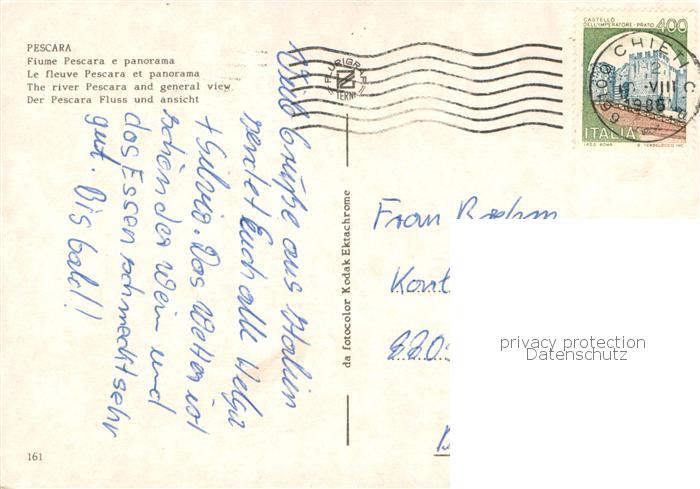 PESCARA
Fiume Pescara e panorama
Le fleuve Pescara et panorama
The river Pescara and general view
Der Pescara Fluss und ansicht
CASTELLO
DELL'IMPERATORE - PRATO
400
CHIETI
VIII
1986
ITALIA
PLURIGRAF
TERNI
Viele Grüße aus Italien
sendet Euch alle Helga
+ Silvia. Das Wetter ist
schön der Wein und
das Essen schmeckt sehr
gut. Bis bald!
da fotocolor Kodak Ektachrome
Frau
privacy protection
Datenschutz
161